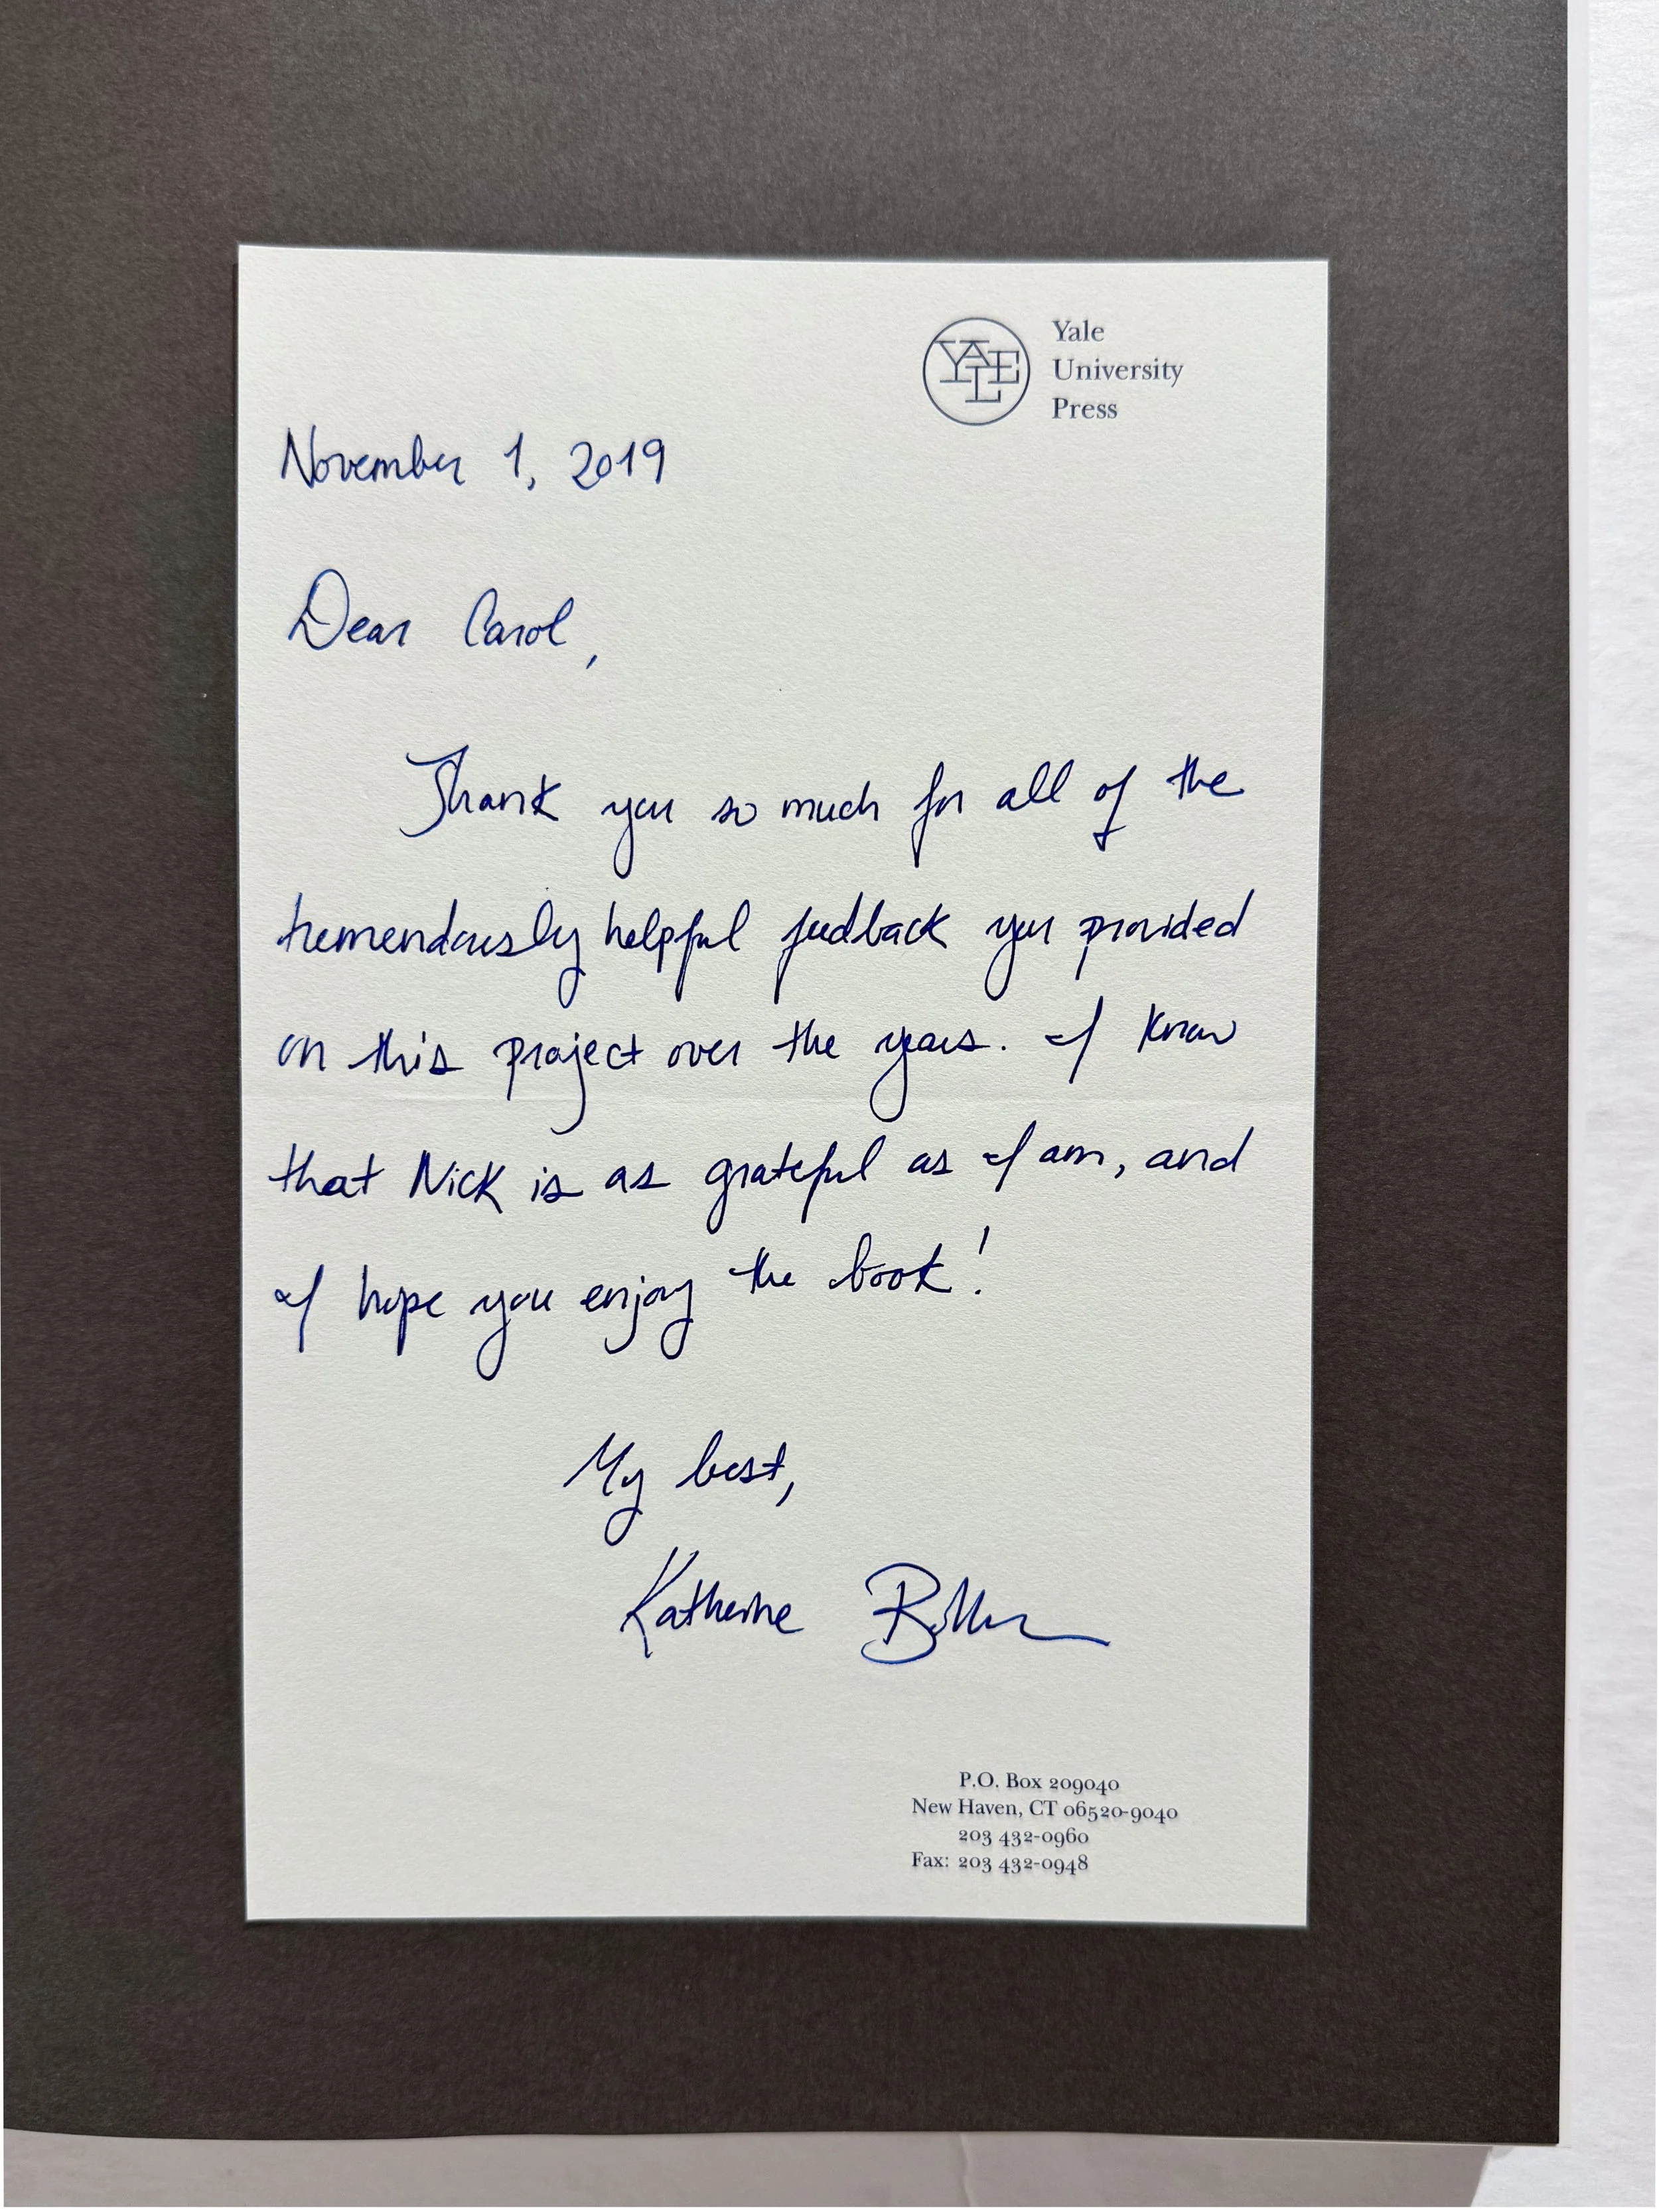 YALE
Yale
University
Press
November 1, 2019
Dear Carol,
Thank you so much for all of the
tremendously helpful feedback you provided
on this project over the years. I know
that Nick is as grateful as I am, and
I hope you enjoy the book!
My best,
Katherine
P.O. Box 209040
New Haven, CT 06520-9040
203 432-0960
Fax: 203 432-0948